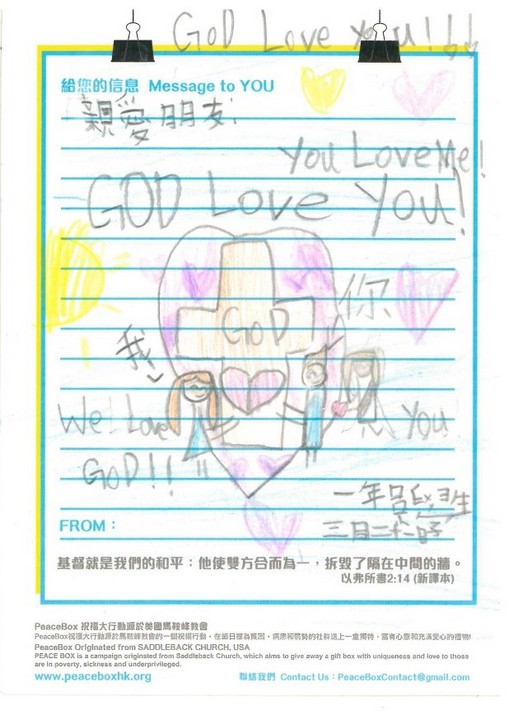 GOD Love you!!↓↓
給您的信息 Message to YOU
親愛朋友:
You Love Me!
GOD Love You!
你
GOD
我
We! Love
You
GOD!!
一年
FROM：
基督就是我們的和平：他使雙方合而為一，拆毀了隔在中間的牆。
以弗所書2:14 (新譯本)
PeaceBox 祝福大行動源於美國馬鞍峰教會
PeaceBox祝福大行動源於馬鞍峰教會的一個祝福行動，在節日裡為貧困、病患和弱勢的社群送上一盒獨特、富有心意和充滿愛心的禮物!
PeaceBox Originated from SADDLEBACK CHURCH, USA
PEACE BOX is a campaign originated from Saddleback Church, which aims to give away a gift box with uniqueness and love to those
are in poverty, sickness and underprivileged.
www.peaceboxhk.org
聯絡我們 Contact Us：PeaceBoxContact@gmail.com